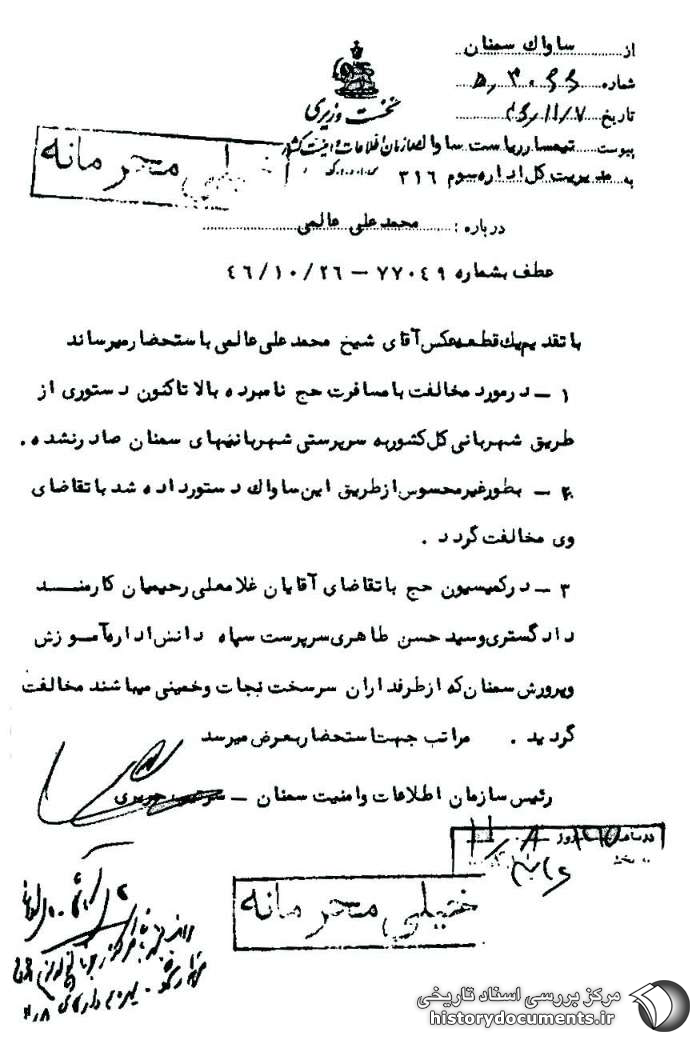 از ساواك سمنان
شماره
تاریخ ۴۶/۱۱/۷
نخست وزیری
پیوست تیمسار ریاست ساواك سازمان اطلاعات و امنیت کشور
به مدیریت کل اداره سوم ۳۱۶
خیلی محرمانه
درباره : محمد علی عالمی
عطف بشماره ۷۷۰۴۹ – ۴۶/۱۰/۲۶
با تقدیم یك قطعه عکس آقای شیخ محمد علی عالمی باستحضار میرساند
۱ – در مورد مخالفت با مسافرت حج نامبرده بالا تاکنون دستوری از
طریق شهربانی کل کشور به سرپرستی شهربانیهای سمنان صادر نشده .
۲ – بطور غیر محسوس از طریق این ساواك دستور داده شد با تقاضای
وی مخالفت گردد .
۳ – در کمیسیون حج با تقاضای آقایان غلامعلی رحیمیان کارمند
دادگستری و سید حسن طاهری سرپرست سپاه دانش اداره آموزش
و پرورش سمنان که از طرفداران سرسخت نجات و خمینی میباشند مخالفت
گردید . مراتب جهت استحضار بعرض میرسد
رئیس سازمان اطلاعات و امنیت سمنان –
خیلی محرمانه
مرکز بررسی اسناد تاریخی
historydocuments.ir